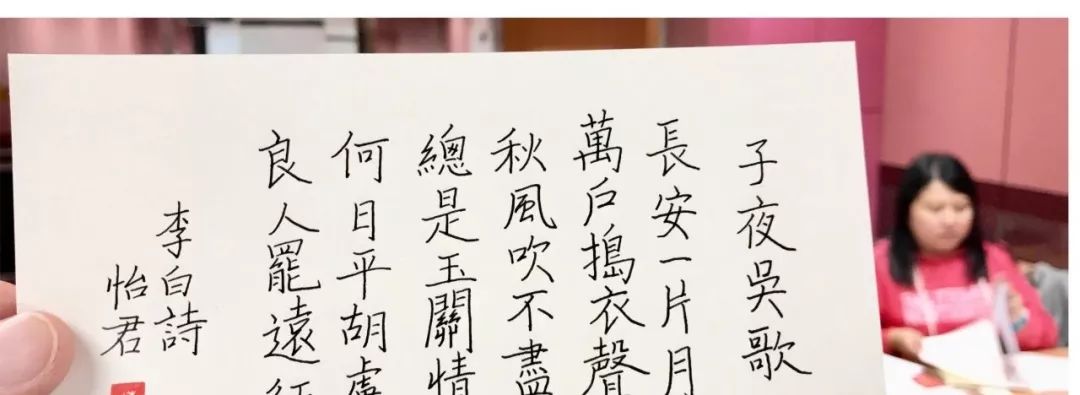 子夜吳歌
長安一片月
萬戶搗衣聲
秋風吹不盡
總是玉關情
何日平胡虜
良人罷遠征
李白詩
怡君